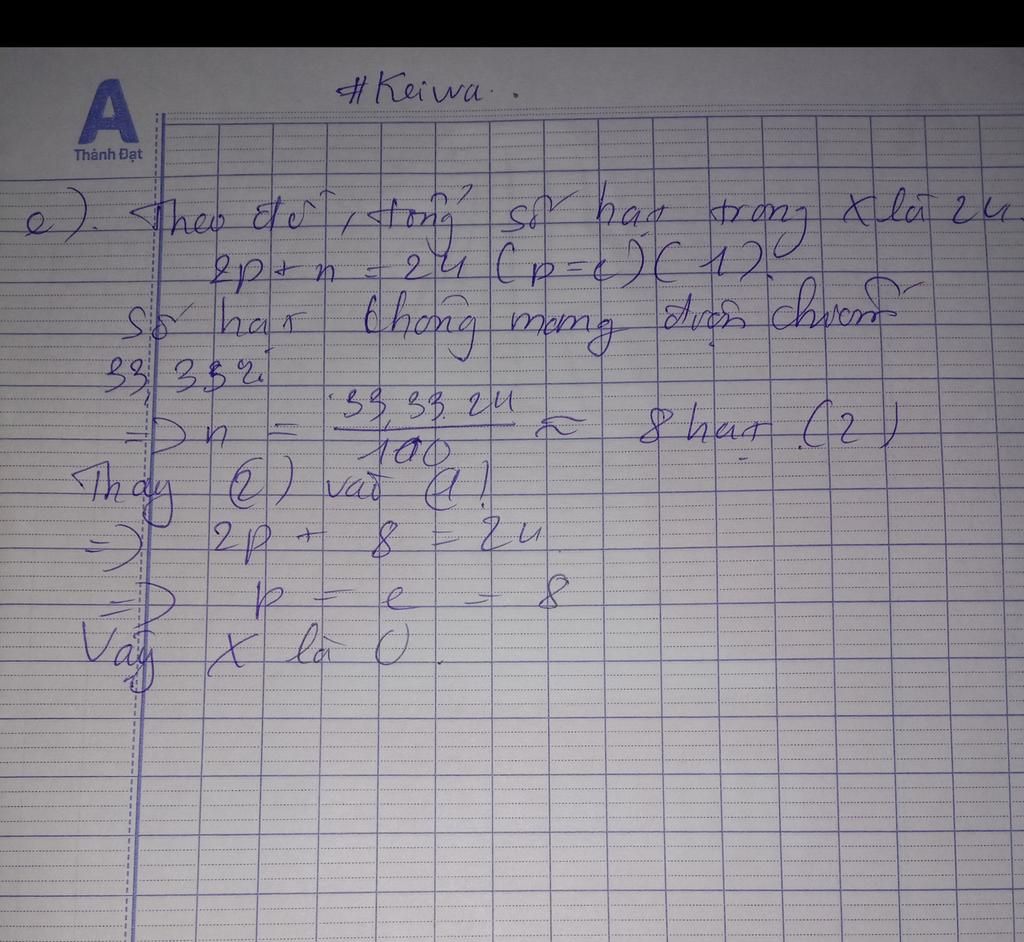 #Keiwa..
A
Thành Đạt
e). Theo đề, tổng số hạt trong X là 24.
2p + n = 24 (p=e)(1)
số hạt không mang điện chiếm
33,33%
=> n = 33,33.24/100 ≈ 8 hạt (2)
Thay (2) vào (1)
=> 2p + 8 = 24
=> p = e = 8
Vậy X là O.